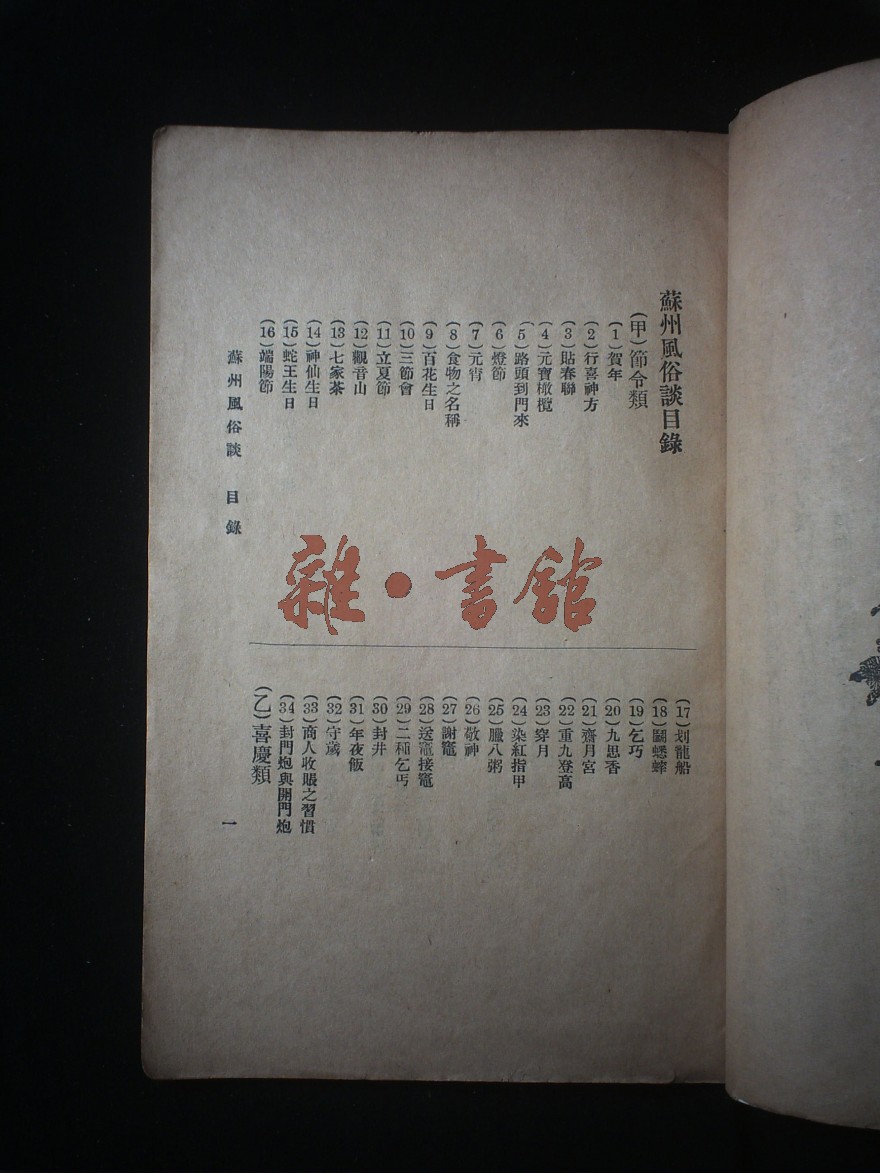 蘇州風俗談目錄
(甲)節令類
(1)賀年
(2)行喜神方
(3)貼春聯
(4)元寶橄欖
(5)路頭到門來
(6)燈節
(7)元宵
(8)食物之名稱
(9)百花生日
(10)三節會
(11)立夏節
(12)觀音山
(13)七家茶
(14)神仙生日
(15)蛇王生日
(16)端陽節
(17)划龍船
(18)鬭蟋蟀
(19)乞巧
(20)九思香
(21)齋月宮
(22)重九登高
(23)穿月
(24)染紅指甲
(25)臘八粥
(26)敬神
(27)謝竈
(28)送竈接竈
(29)二種乞丐
(30)封井
(31)年夜飯
(32)守歲
(33)商人收賬之習慣
(34)封門炮與開門炮
(乙)喜慶類
蘇州風俗談 目錄
一
雜·書館